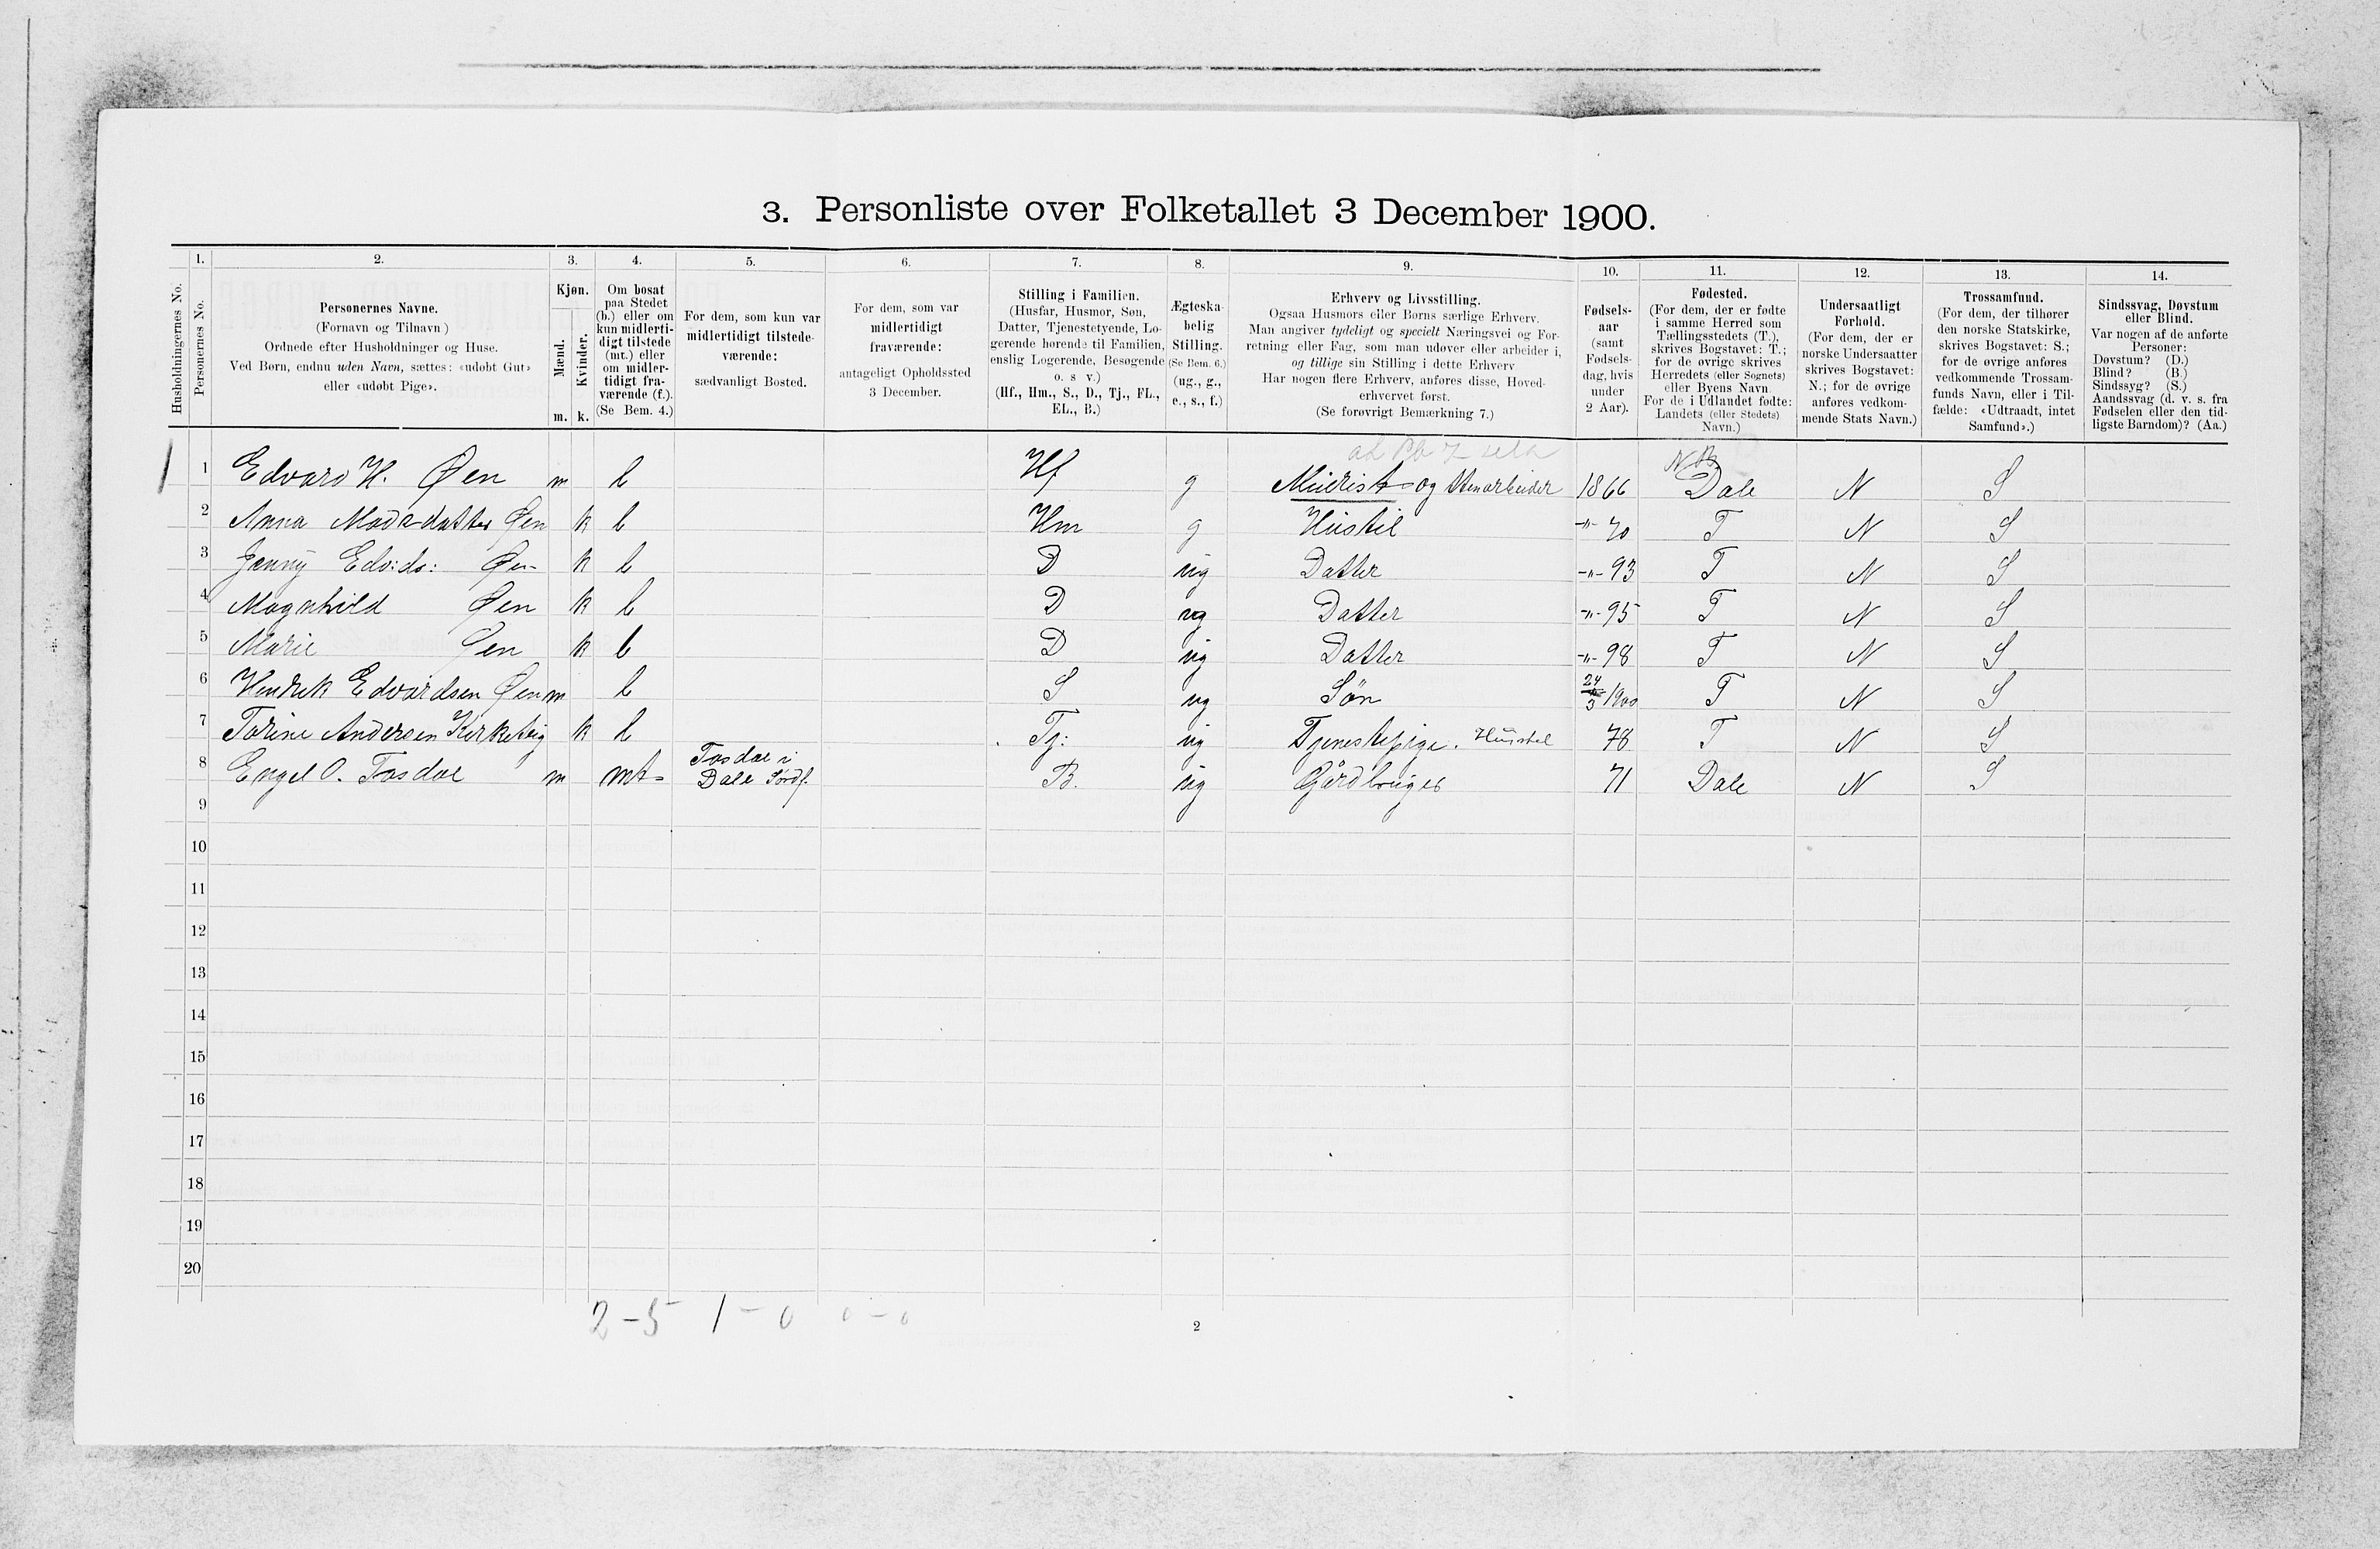 3. Personliste over Folketallet 3 December 1900.
Husholdningernes No.
1.
Personernes No.
2.
Personernes Navne.
(Fornavn og Tilnavn)
Ordnede efter Husholdninger og Huse.
Ved Børn, endnu uden Navn, sættes: «udøbt Gut»
eller «udøbt Pige».
3.
Kjøn.
Mænd.
Kvinder.
m. k.
4.
Om bosat
paa Stedet
(b.) eller om
kun midlerti-
digt tilstede
(mt.) eller
om midler-
tidigt fra-
værende (f.).
(Se Bem. 4.)
5.
For dem, som kun var
midlertidigt tilstede-
værende:
sædvanligt Bosted.
6.
For dem, som var
midlertidigt
fraværende:
antageligt Opholdssted
3 December.
7.
Stilling i Familien.
(Husfar, Husmor, Søn,
Datter, Tjenestetyende, Lo-
gerende hørende til Familien,
enslig Logerende, Besøgende
o. s v.)
(Hf., Hm., S., D., Tj., FL.,
EL., B.)
8.
Ægteska-
belig
Stilling.
(Se Bem. 6.)
(ug., g.,
e., s., f.)
9.
Erhverv og Livsstilling.
Ogsaa Husmors eller Børns særlige Erhverv.
Man angiver tydeligt og specielt Næringsvei og For-
retning eller Fag, som man udøver eller arbeider i,
og tillige sin Stilling i dette Erhverv
Har nogen flere Erhverv, anføres disse, Hoved-
erhvervet først.
(Se forøvrigt Bemærkning 7.)
10.
Fødsels-
aar
(samt
Fødsels-
dag, hvis
under
2 Aar).
11.
Fødested.
(For dem, der er fødte
i samme Herred som
Tællingsstedets (T.),
skrives Bogstavet: T.;
for de øvrige skrives
Herredets (eller Sognets)
eller Byens Navn
For de i Udlandet fødte:
Landets (eller Stedets)
Navn.)
12.
Undersaatligt
Forhold.
(For dem, der er
norske Undersaatter
skrives Bogstavet:
N.; for de øvrige
anføres vedkom-
mende Stats Navn.)
13.
Trossamfund.
(For dem, der tilhører
den norske Statskirke,
skrives Bogstavet: S.;
for de øvrige anføres
vedkommende Trossam-
funds Navn, eller i Til-
fælde: «Udtraadt, intet
Samfund».)
14.
Sindssvag, Døvstum
eller Blind.
Var nogen af de anførte
Personer:
Døvstum? (D.)
Blind? (B.)
Sindssyg? (S.)
Aandssvag (d. v. s. fra
Fødselen eller den tid-
ligste Barndom)? (Aa.)
1 1 Edvard H. Øen m b Hf g Müdrist og Stenarbeider 1866 NB Dale N S
2 Anna Madsdatter Øen k b Hm g Hüstel -"- 70 T N S
3 Jenny Edv:ds: Øen k b D ug Datter -"- 93 T N S
4 Magnhild Øen k b D ug Datter -"- 95 T N S
5 Marie Øen k b D ug Datter -"- 98 T N S
6 Hendrik Edvardsen Øen m b S ug Søn 24/3 1900 T N S
7 Torine Andersen Kirketeig k b Tj: ug Tjenestepige. Hüstel 78 T N S
8 Engel O. Tosdal m mt Tosdal i Dale Søndf. B. ug Gårdbruger 71 Dale N S
9
10
11
12
13
14
15
16
17
18
19
20
2-5 1-0 0-0
2